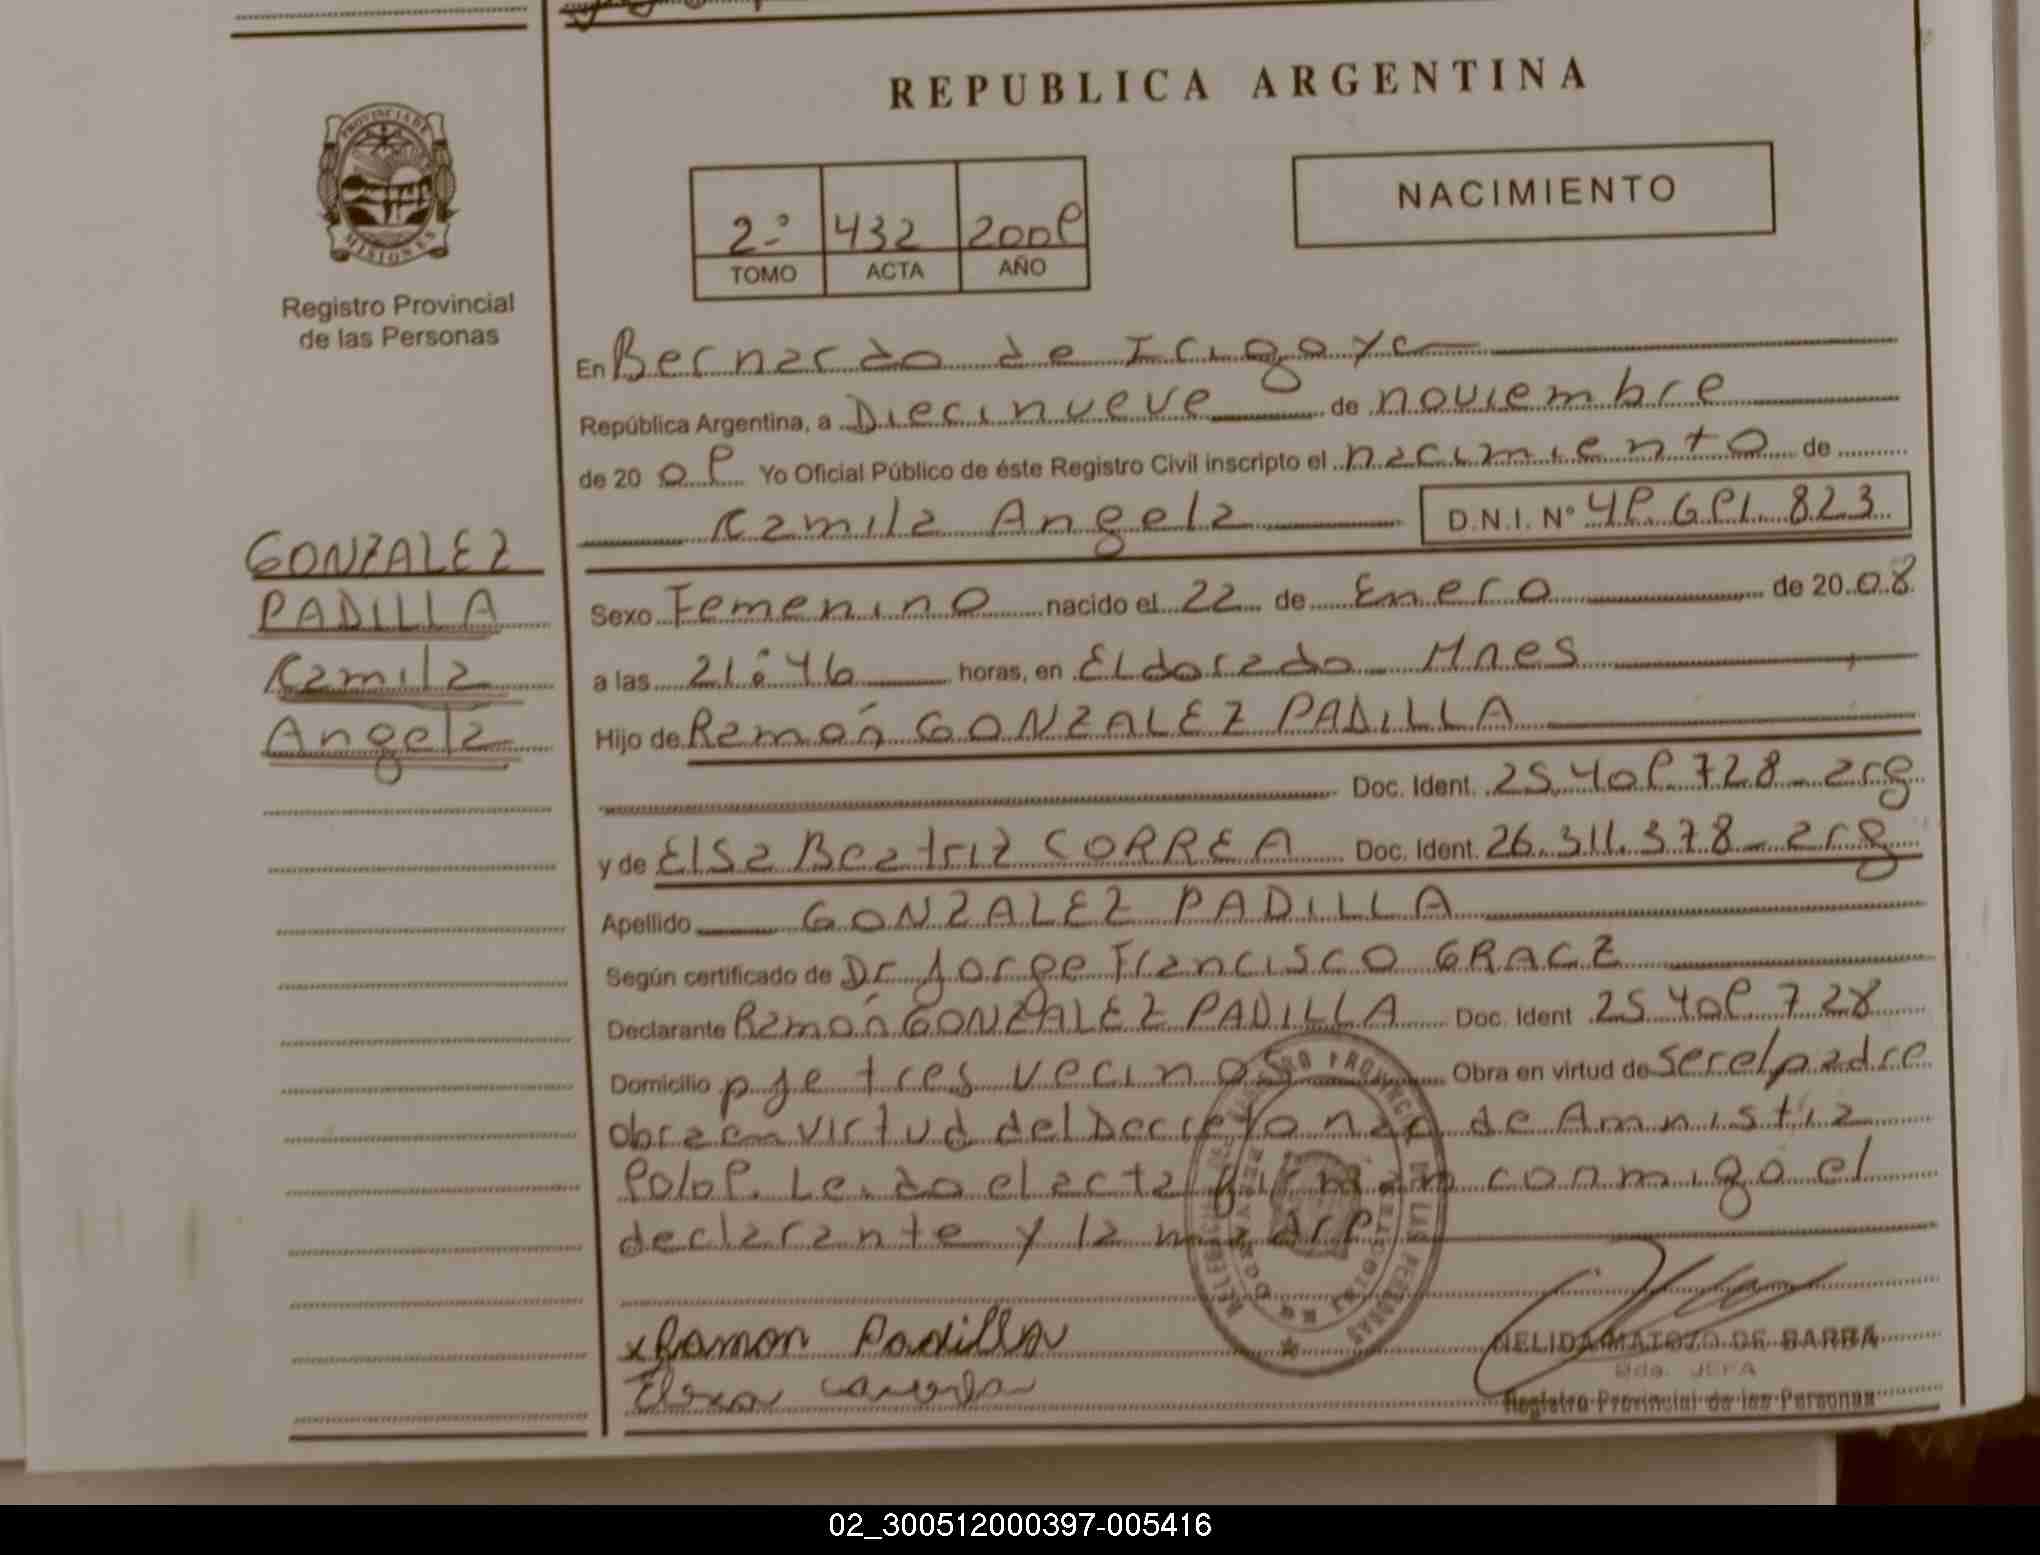 REPUBLICA ARGENTINA
PROVINCIA DE
MISIONES
NACIMIENTO
2º 432 2009
TOMO ACTA AÑO
Registro Provincial
de las Personas
En Bernardo de Irigoye
República Argentina, a Diecinueve de noviembre
de 20 09 Yo Oficial Público de éste Registro Civil inscripto el nacimiento de
Kamila Angela D.N.I. Nº 49.691.823
GONZALEZ
PADILLA
Kamila
Angela
Sexo Femenino nacido el 22 de Enero de 20 08
a las 21:46 horas, en Eldorado Mnes
Hijo de Ramón GONZALEZ PADILLA
Doc. Ident. 25.409.728 - arg
y de Elsa Beatriz CORREA Doc. Ident. 26.311.378 - arg
Apellido GONZALEZ PADILLA
Según certificado de Dr Jorge Francisco GRACZ
Declarante Ramón GONZALEZ PADILLA Doc. Ident 25.409.728
Domicilio pje tres vecinos Obra en virtud de ser el padre
obra en virtud del Decreto nac de Amnistia
90/09. Leido el acta firman conmigo el
declarante y la madre
x Ramon Padilla
NELIDA MATOZO DE BARBA
JEFA
Registro Provincial de las Personas
02_300512000397-005416